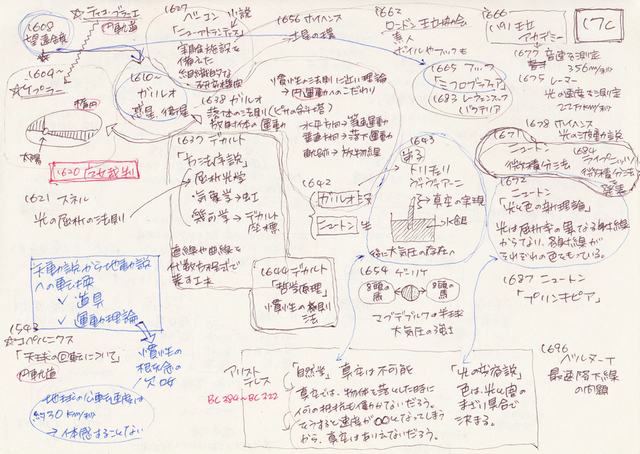 1608
望遠鏡
ティコ・ブラーエ
円軌道
1627
ベーコン 小説
「ニューアトランティス」
実験施設を
備えた
研究機関
1656 ホイヘンス
→土星の環
1662
ロンドン王立協会
素人
ボイルやフックも
1666
パリ王立
アカデミー
17C
1677 音速を測定
356m/秒
1675 レーマー
光の速度を測定
22万km/秒
1609〜
ケプラー
楕円
太陽
1610〜
ガリレオ
惑星、衛星
慣性の法則に近い理論
→円運動へのこだわり
1638 ガリレオ
落体の法則(ピサの斜塔)
放射体の運動
水平方向→等速運動
垂直方向→落下運動
軌跡→放物線
1665 フック
「ミクログラフィア」
1683 レーフェンフック
バクテリア
1678 ホイヘンス
光の波動説
1671
ニュートン
微分積分法
1684
ライプニッツ
微分積分法
発表
1620 魔女裁判
1621 スネル
光の屈折の法則
1637 デカルト
「方法序説」
屈折光学
気象学→虹
幾何学→デカルト
座標
直線や曲線を
代数方程式で
表す工夫
1642
ガリレオ 死
ニュートン 生
1643
弟子
トリチェリ
ヴィヴィアーニ
真空の実現
水銀
後に大気圧の存在へ
1672
ニュートン
「光と色の新理論」
光は屈折率の異なる射線
からなり、各射線が
それぞれの色をもっている。
天動説から地動説
への転換
✓ 道具
✓ 運動理論
1644 デカルト
「哲学原理」
慣性の法則
1654 ゲーリケ
8頭の
馬
8頭の
馬
マグデブルグの半球
大気圧の強さ
1687 ニュートン
「プリンキピア」
1543
コペルニクス
「天球の回転について」
円軌道
慣性の
概念の
欠如
地球の公転速度は
約30km/秒
→体感することない
アリスト
テレス
BC384〜BC322
「自然学」真空は不可能
真空では、物体を落とした時に
何の抵抗も働かないだろう。
そうすると速度が∞になってしまう
から、真空はありえないだろう。
色は光と闇の
まざり具合で
決まる。
1696
ベルヌーイ
最速降下線
の問題